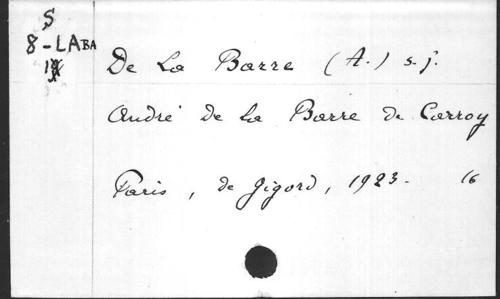 S
8-LABA
De La Barre (A.) s.j.
André de la Barre de Carroy
Paris, de Gigord, 1923. 16